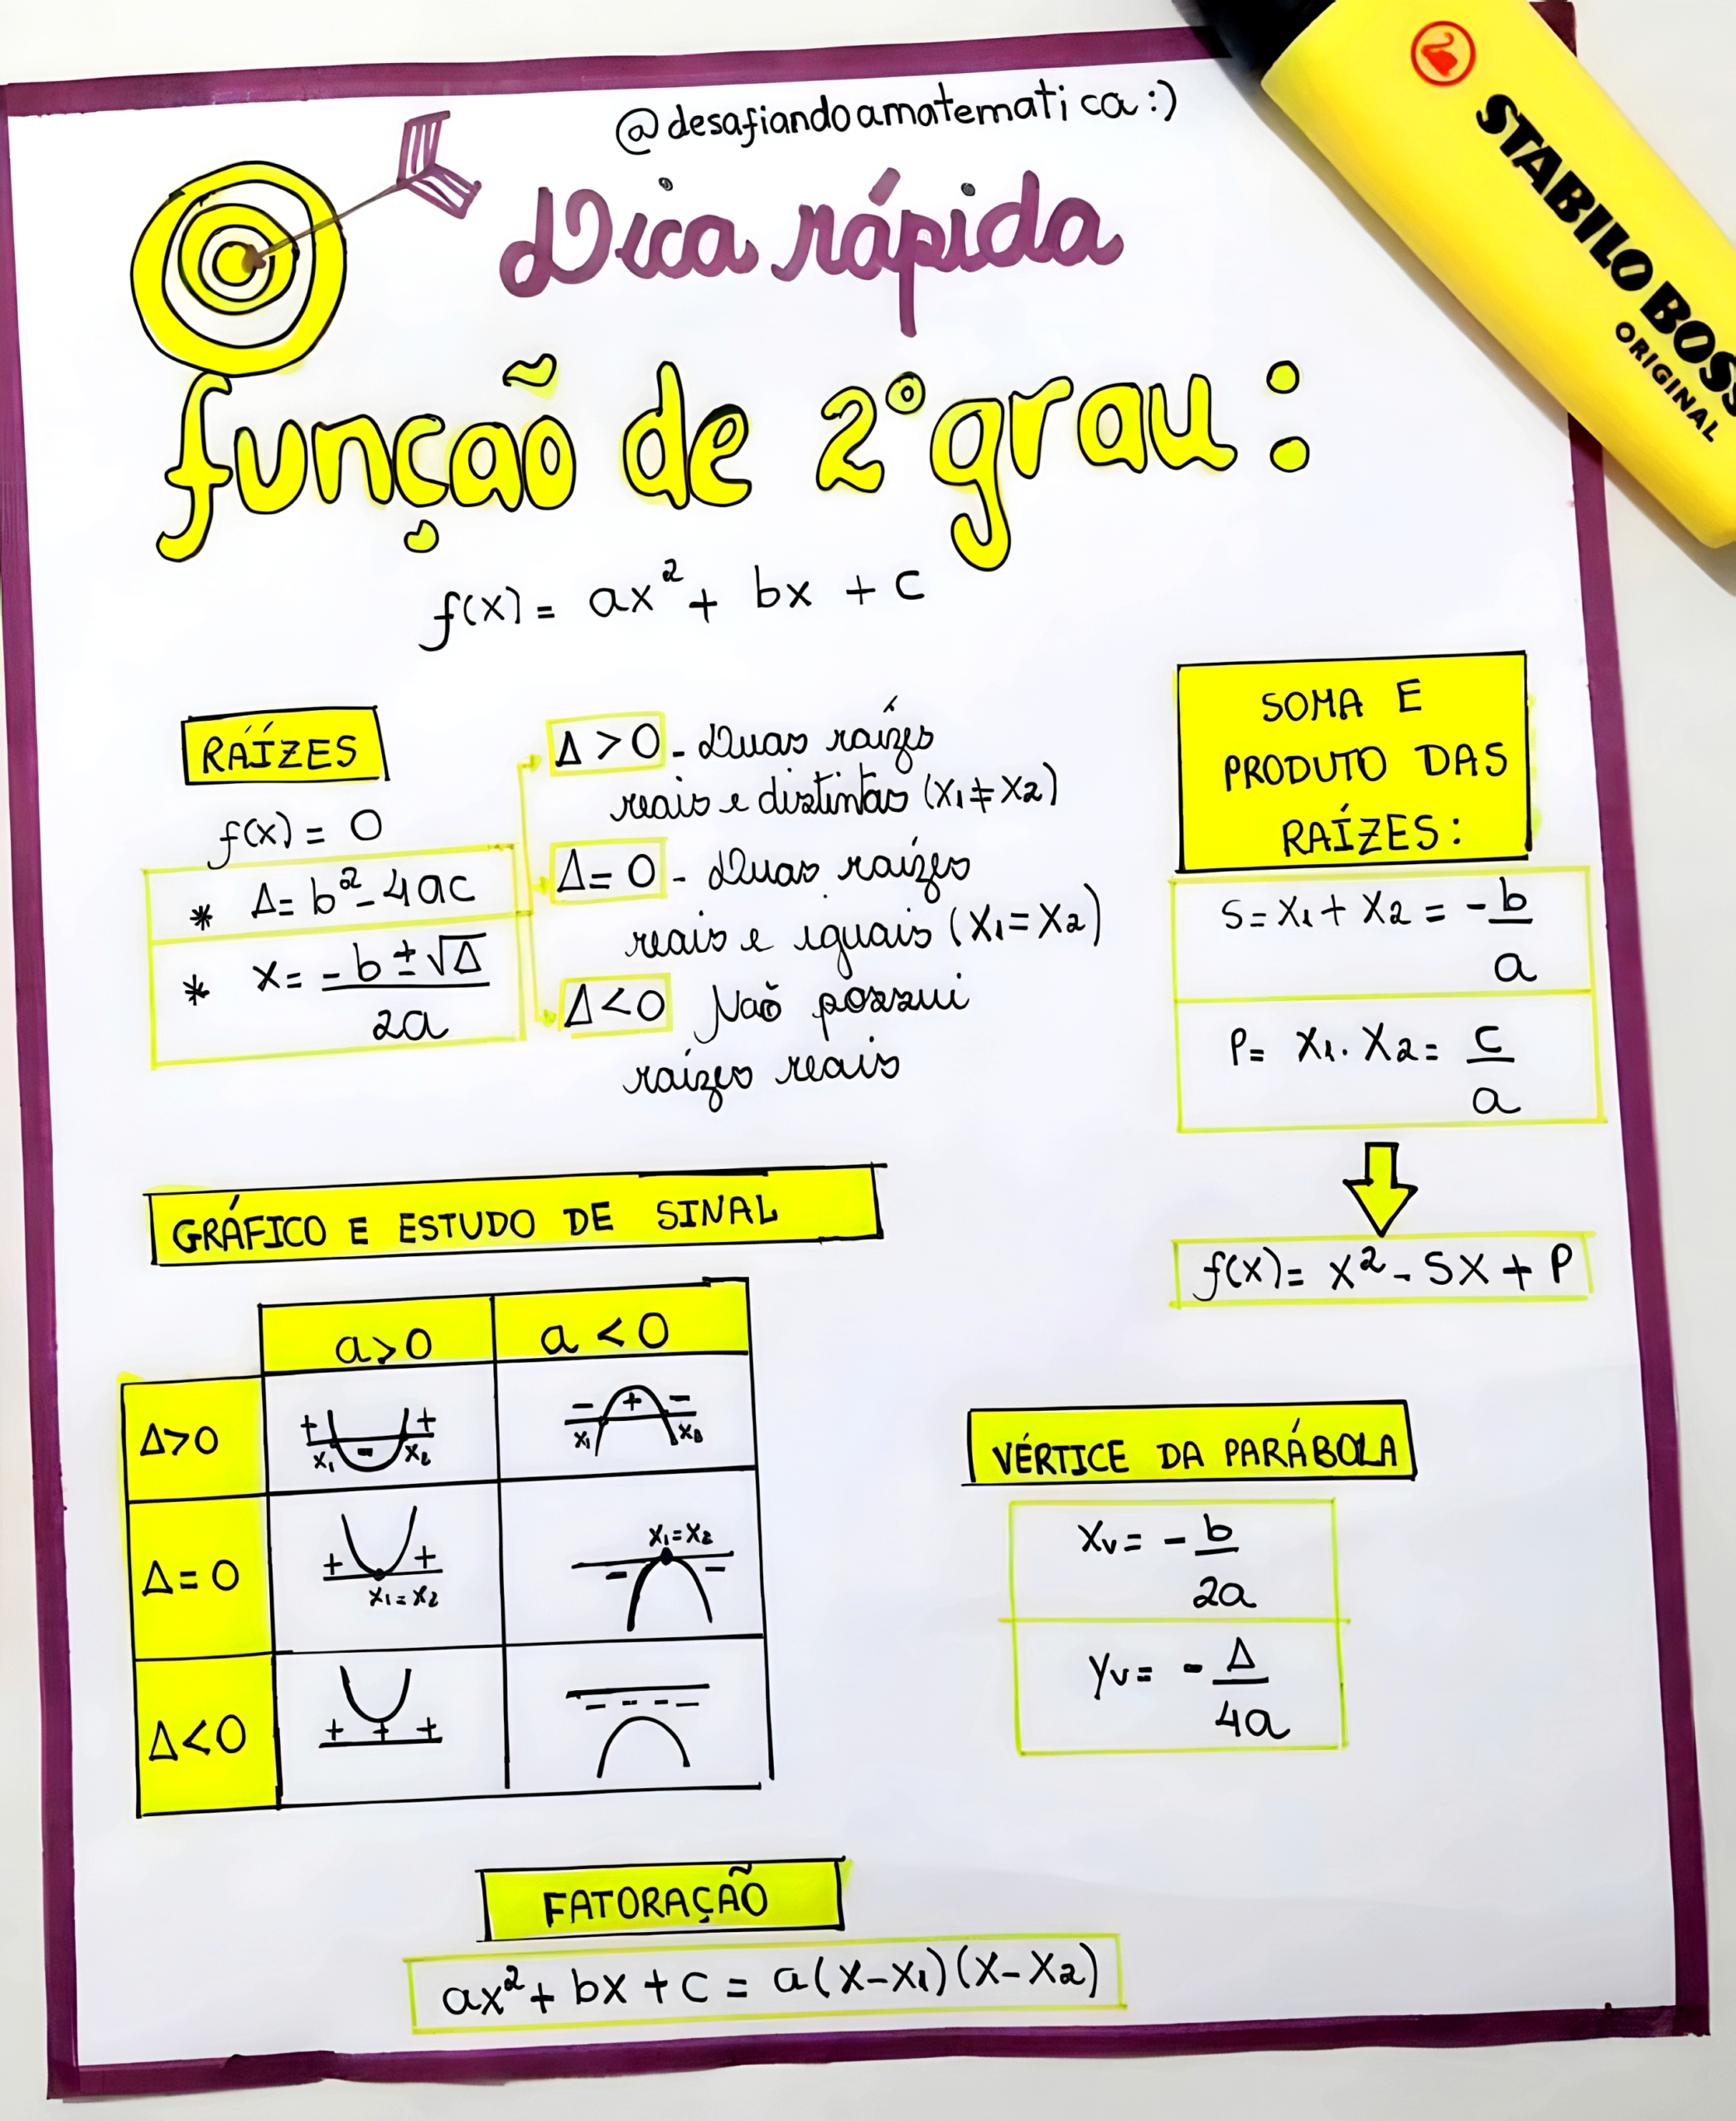 @desafiandoamatematica:)
STABILO BOSS
ORIGINAL
Dica rápida
função de 2º grau:
f(x) = ax² + bx + c
RAÍZES
f(x) = 0
* Δ = b² - 4ac
* x = -b ± √Δ
2a
Δ > 0 - Duas raízes
reais e distintas (x₁ ≠ x₂)
Δ = 0 - Duas raízes
reais e iguais (x₁ = x₂)
Δ < 0 Não possui
raízes reais
SOMA E
PRODUTO DAS
RAÍZES:
S = x₁ + x₂ = - b
a
P = x₁ . x₂ = c
a
f(x) = x² - Sx + P
GRÁFICO E ESTUDO DE SINAL
a > 0 a < 0
Δ > 0
+ + - x₁ x₂
- + - x₁ x₂
Δ = 0
+ + x₁ = x₂
x₁ = x₂ - -
Δ < 0
+ + +
- - - -
VÉRTICE DA PARÁBOLA
Xv = - b
2a
Yv = - Δ
4a
FATORAÇÃO
ax² + bx + c = a(x - x₁)(x - x₂)